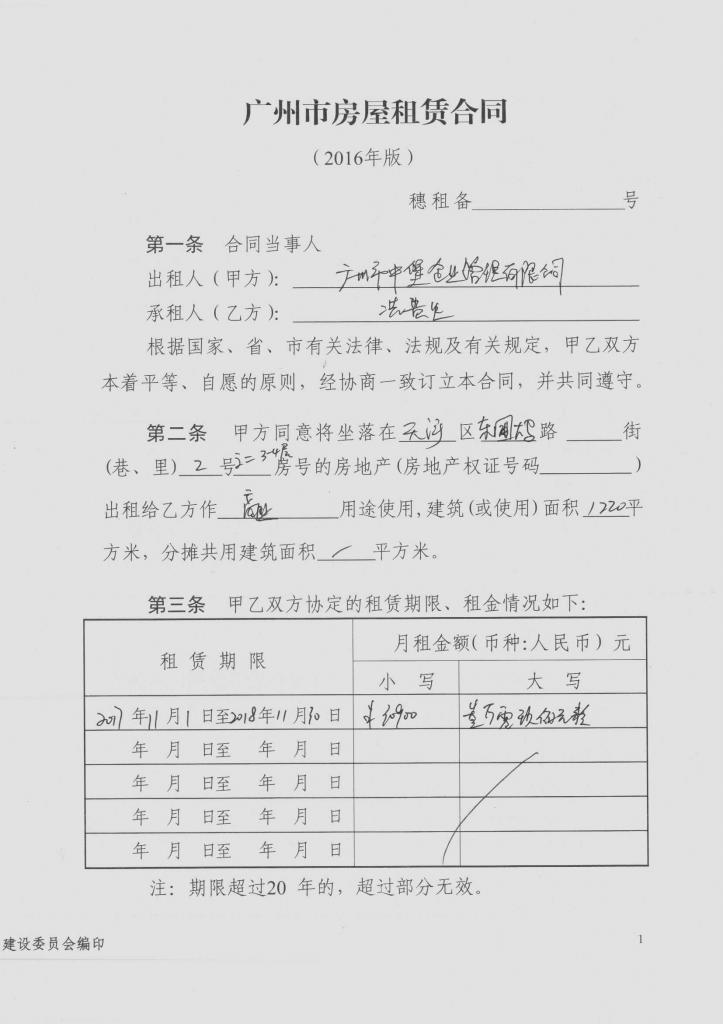 广州市房屋租赁合同
（2016年版）
穗租备 号
第一条 合同当事人
出租人（甲方）： 广州市中堡企业管理有限公司
承租人（乙方）：
根据国家、省、市有关法律、法规及有关规定，甲乙双方
本着平等、自愿的原则，经协商一致订立本合同，并共同遵守。
第二条 甲方同意将坐落在天河区东圃大马路 街
（巷、里）2号 3-4层房号的房地产（房地产权证号码 ）
出租给乙方作商业用途使用，建筑（或使用）面积1220平
方米，分摊共用建筑面积／平方米。
第三条 甲乙双方协定的租赁期限、租金情况如下：
租赁期限 月租金额（币种：人民币）元
小写 大写
2017年11月1日至2018年11月30日 ¥ 10900 壹万零玖佰元整
年 月 日至 年 月 日
年 月 日至 年 月 日
年 月 日至 年 月 日
年 月 日至 年 月 日
注：期限超过20 年的，超过部分无效。
建设委员会编印
1